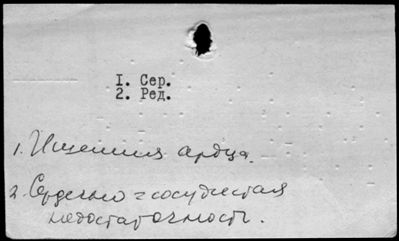 1. Сер.
2. Ред.
1. Ишемия сердца.
2. Сердечно-сосудистая
недостаточность.